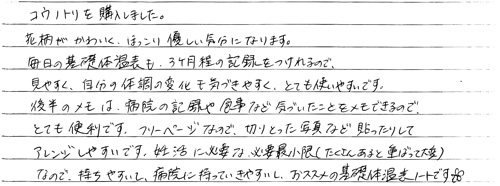 コウノトリを購入しました。
花柄がかわいく、ほっこり優しい気分になります。
毎日の基礎体温表も、3ヶ月程の記録をつけれるので、
見やすく、自分の体調の変化も気づきやすく、とても使いやすいです。
後半のメモは、病院の記録や食事など気づいたことをメモできるので、
とても便利です。フリーページなので、切りとった写真など貼ったりして
アレンジしやすいです。妊活に必要な必要最小限(たくさんあると重ばって大変)
なので、持ちやすいし、病院に持っていきやすいし、おススメの基礎体温表ノートです